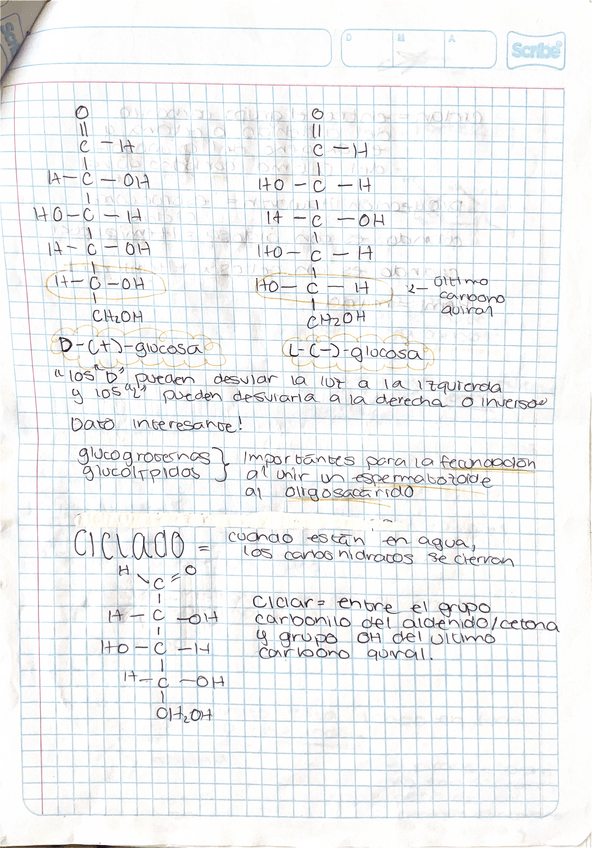 D M A
Scribe
O O
|| ||
C – H C – H
H – C – OH HO – C – H
HO – C – H H – C – OH
H – C – OH HO – C – H
H – C – OH HO – C – H último
carbono
quiral
CH2OH CH2OH
D-(+)-glucosa L-(-)-glucosa
"los "D" pueden desviar la luz a la izquierda
y los "L" pueden desviarla a la derecha o inverso"
Dato interesante!
glucoproteínas } Importantes para la fecundación
glucolípidos al unir un espermatozoide
al oligosacárido
Ciclado = cuando están en agua,
los carbohidratos se cierran
H O
C
H – C – OH Ciclar = entre el grupo
carbonilo del aldehído/cetona
HO – C – H y grupo OH del último
carbono quiral.
H – C – OH
CH2OH